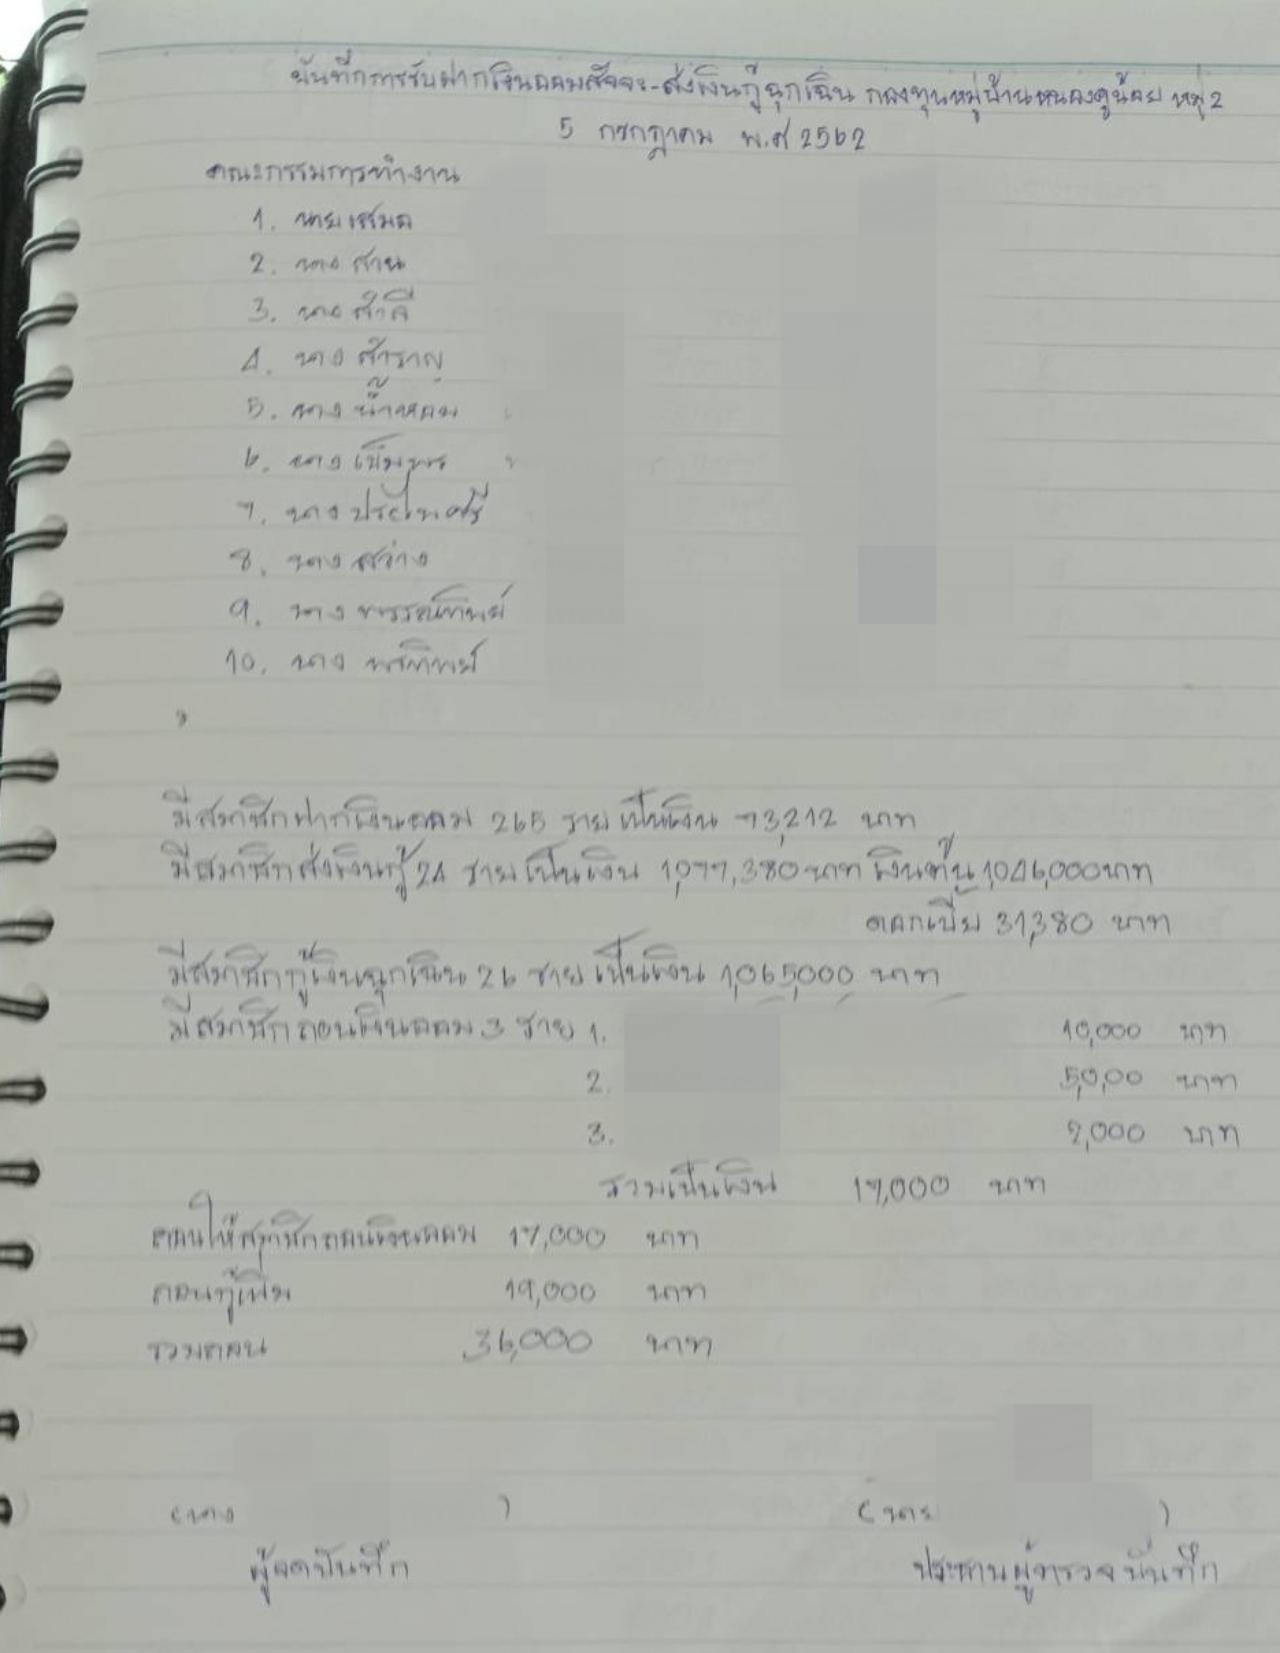 บันทึกการรับฝากเงินออมสัจจะ-ส่งเงินกู้ฉุกเฉิน กองทุนหมู่บ้านหนองคูน้อย หมู่ 2
5 กรกฎาคม พ.ศ 2562
คณะกรรมการทำงาน
1. นายเสมอ
2. นาง สาน
3. นาง สำลี
4. นาง สำราญ
5. นาง น้ำหอม
6. นาง เพ็มพร
7. นาง ประไพศรี
8. นาง สว่าง
9. นาง พรรณทิพย์
10. นาง พรทิพย์
มีสมาชิกฝากเงินออม 265 ราย เป็นเงิน 73,212 บาท
มีสมาชิกส่งเงินกู้ 24 ราย เป็นเงิน 1,077,380 บาท เงินต้น 1,046,000 บาท
ดอกเบี้ย 31,380 บาท
มีสมาชิกกู้เงินฉุกเฉิน 26 ราย เป็นเงิน 1,065,000 บาท
มีสมาชิกถอนเงินออม 3 ราย 1. 10,000 บาท
2. 5,0,00 บาท
3. 2,000 บาท
รวมเป็นเงิน 17,000 บาท
ถอนให้สมาชิกถอนเงินออม 17,000 บาท
ถอนกู้เพิ่ม 19,000 บาท
รวมถอน 36,000 บาท
(นาง ) (นาย )
ผู้จดบันทึก ประธานผู้ตรวจบันทึก